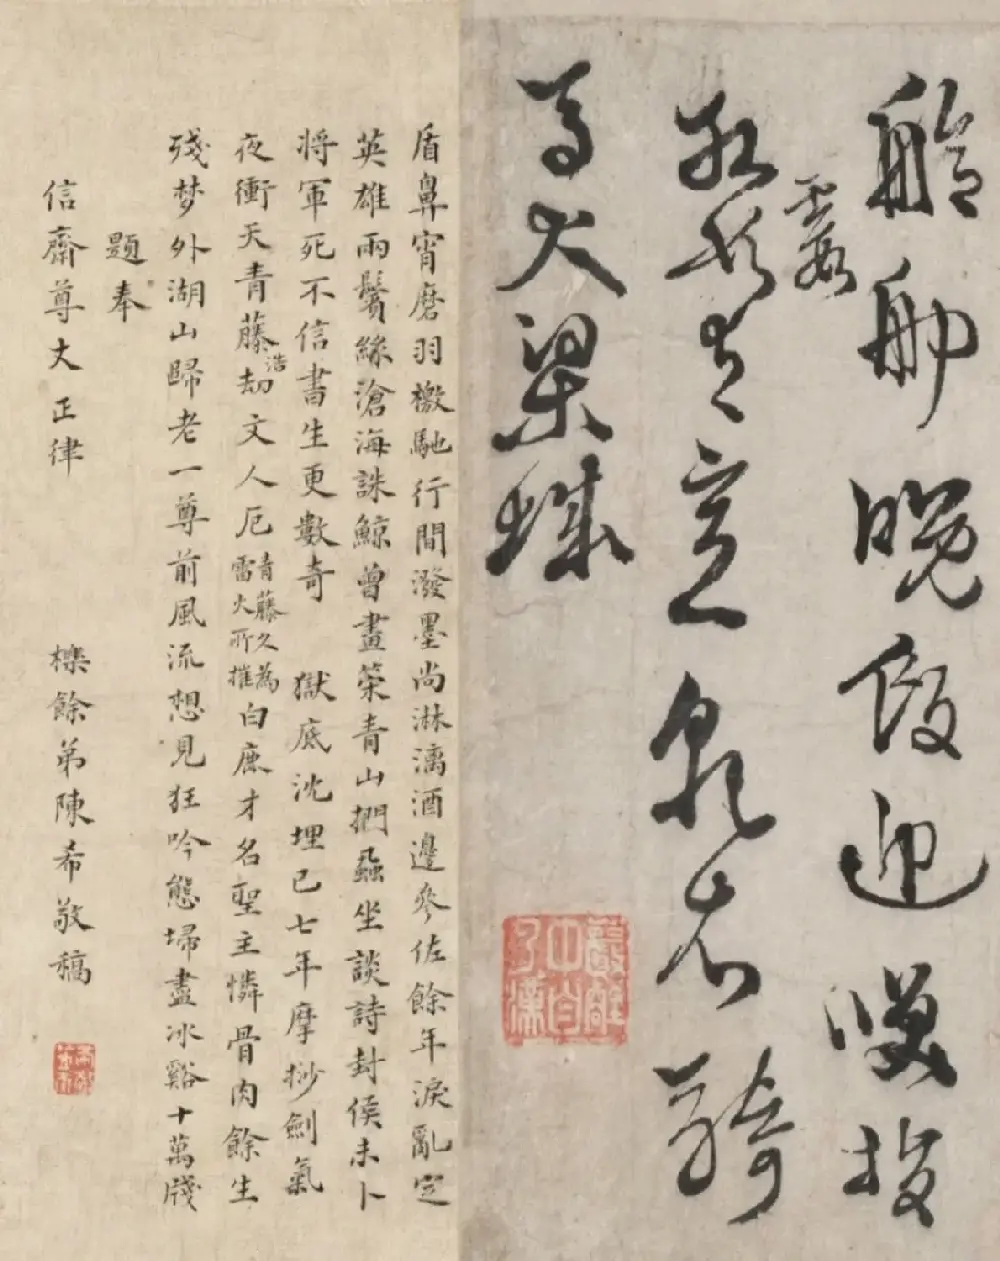 晚 迎 投
霞
騎
馬大梁城
盾鼻宵磨羽檄馳行間潑墨尚淋漓酒邊參佐餘年淚亂定
英雄兩鬢絲滄海誅鯨曾畫策青山捫蝨坐談詩封侯未卜
將軍死不信書生更數奇 獄底沈埋已七年摩挱劍氣
夜衝天青藤浩劫文人厄青藤久為雷火所摧白鹿才名聖主憐骨肉餘生
殘梦外湖山歸老一尊前風流想見狂吟態埽盡冰谿十萬牋
題奉
信齋尊丈正律 櫟餘弟陳希敬稿